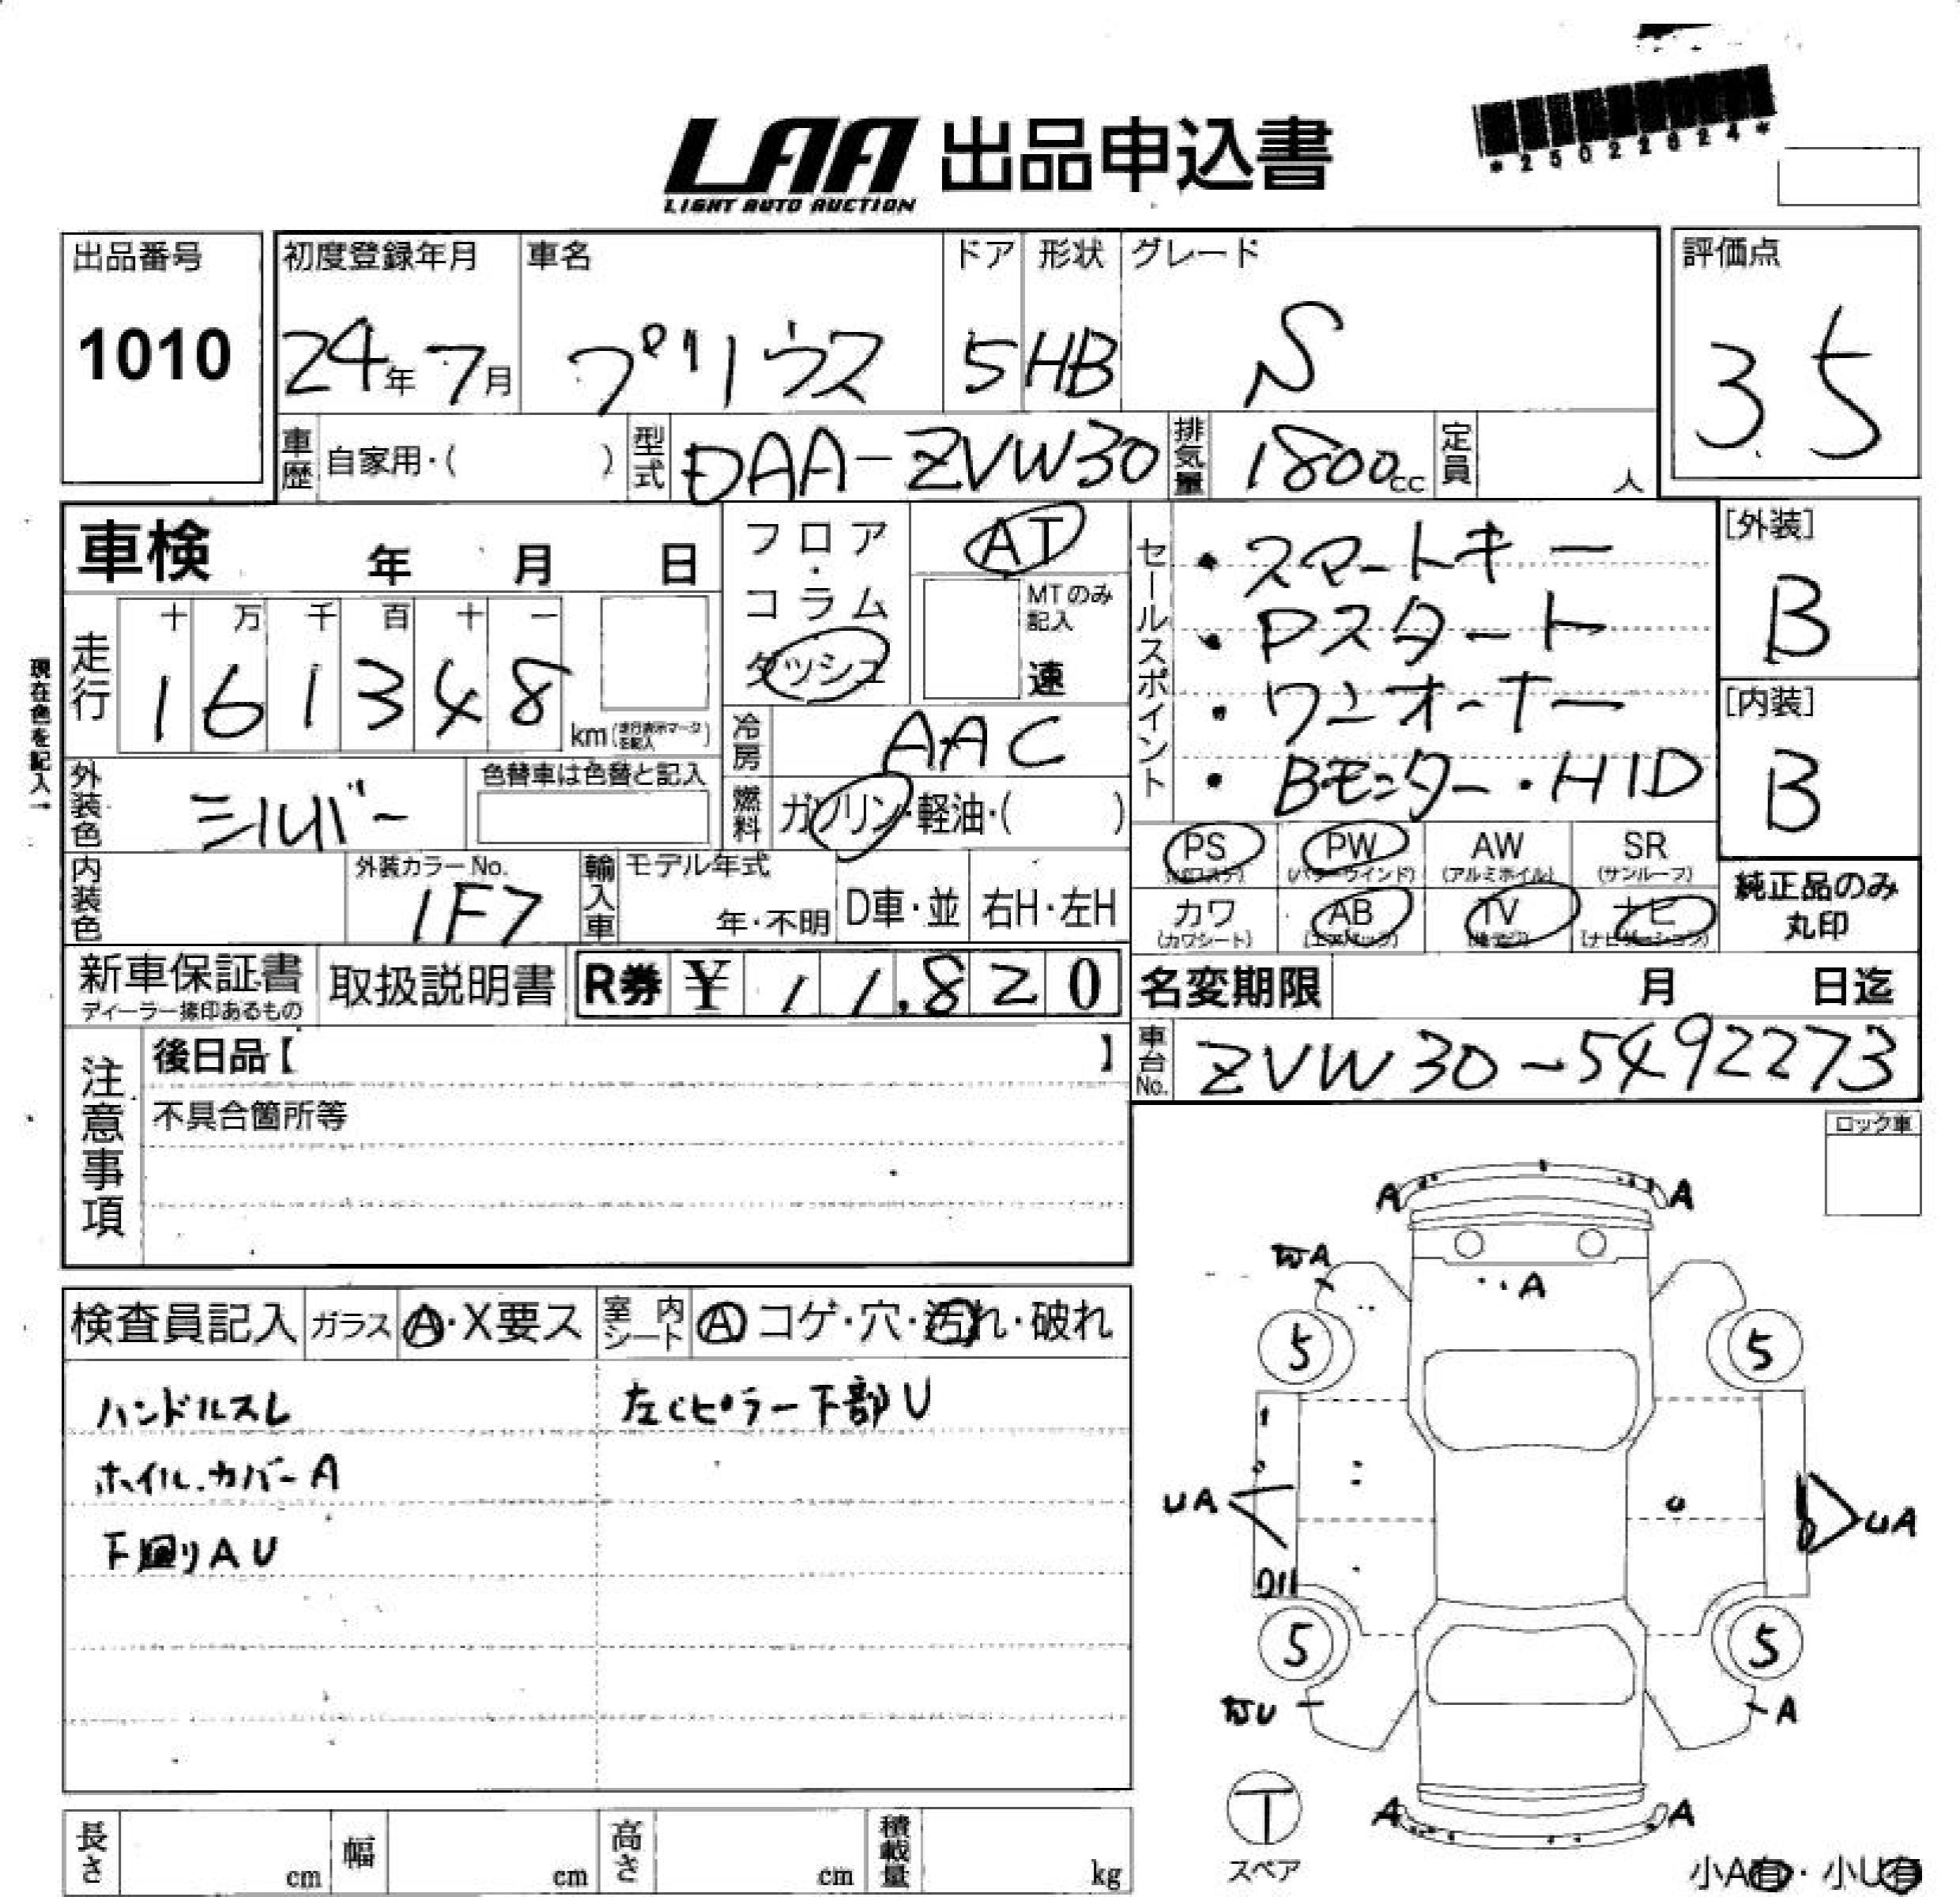 *25022624*
LAA 出品申込書
LIGHT AUTO AUCTION
出品番号
1010
初度登録年月
24年7月
車名
プリウス
ドア
5
形状
HB
グレード
S
評価点
3.5
車歴 自家用・( )
型式 DAA-ZVW30
排気量 1800cc
定員 人
車検 年 月 日
フロア・コラム
ダッシュ
AT
MTのみ記入
速
セールスポイント
・スマートキー
・Pスタート
・ワンオーナー
・Bモニター・HID
[外装]
B
[内装]
B
現在色を記入→
走行
十 万 千 百 十 一
1 6 1 3 4 8
km
冷房 AAC
外装色 シルバー
色替車は色替と記入
燃料 ガソリン・軽油・( )
内装色
外装カラーNo.
1F7
輸入車
モデル年式
年・不明
D車・並
右H・左H
PS PW AW SR
(パワーウインド) (アルミホイル) (サンルーフ)
カワ AB TV ナビ
(カワシート) (エアバッグ) (ナビゲーション)
純正品のみ
丸印
新車保証書
ディーラー捺印あるもの
取扱説明書
R券 ¥ 11,820
名変期限 月 日迄
車台No. ZVW30-5492273
注意事項
後日品【 】
不具合箇所等
ロック車
検査員記入 ガラス A・X要ス
室内シート A コゲ・穴・汚れ・破れ
ハンドルスレ
左Cピラー下部U
ホイルカバーA
下廻りAU
A A
A
A
5 5
UA UA
5 5
U A
A A
T
スペア
小A有・小U有
長さ cm
幅 cm
高さ cm
積載量 kg